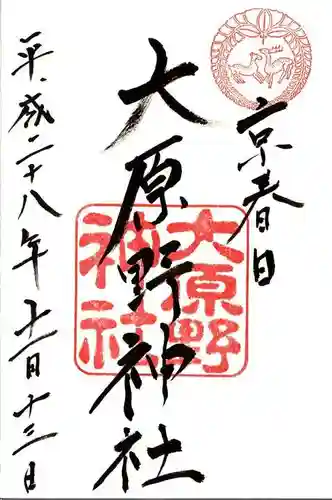 京春日
大原野神社
大原野
神社
平成二十八年十一月十三日